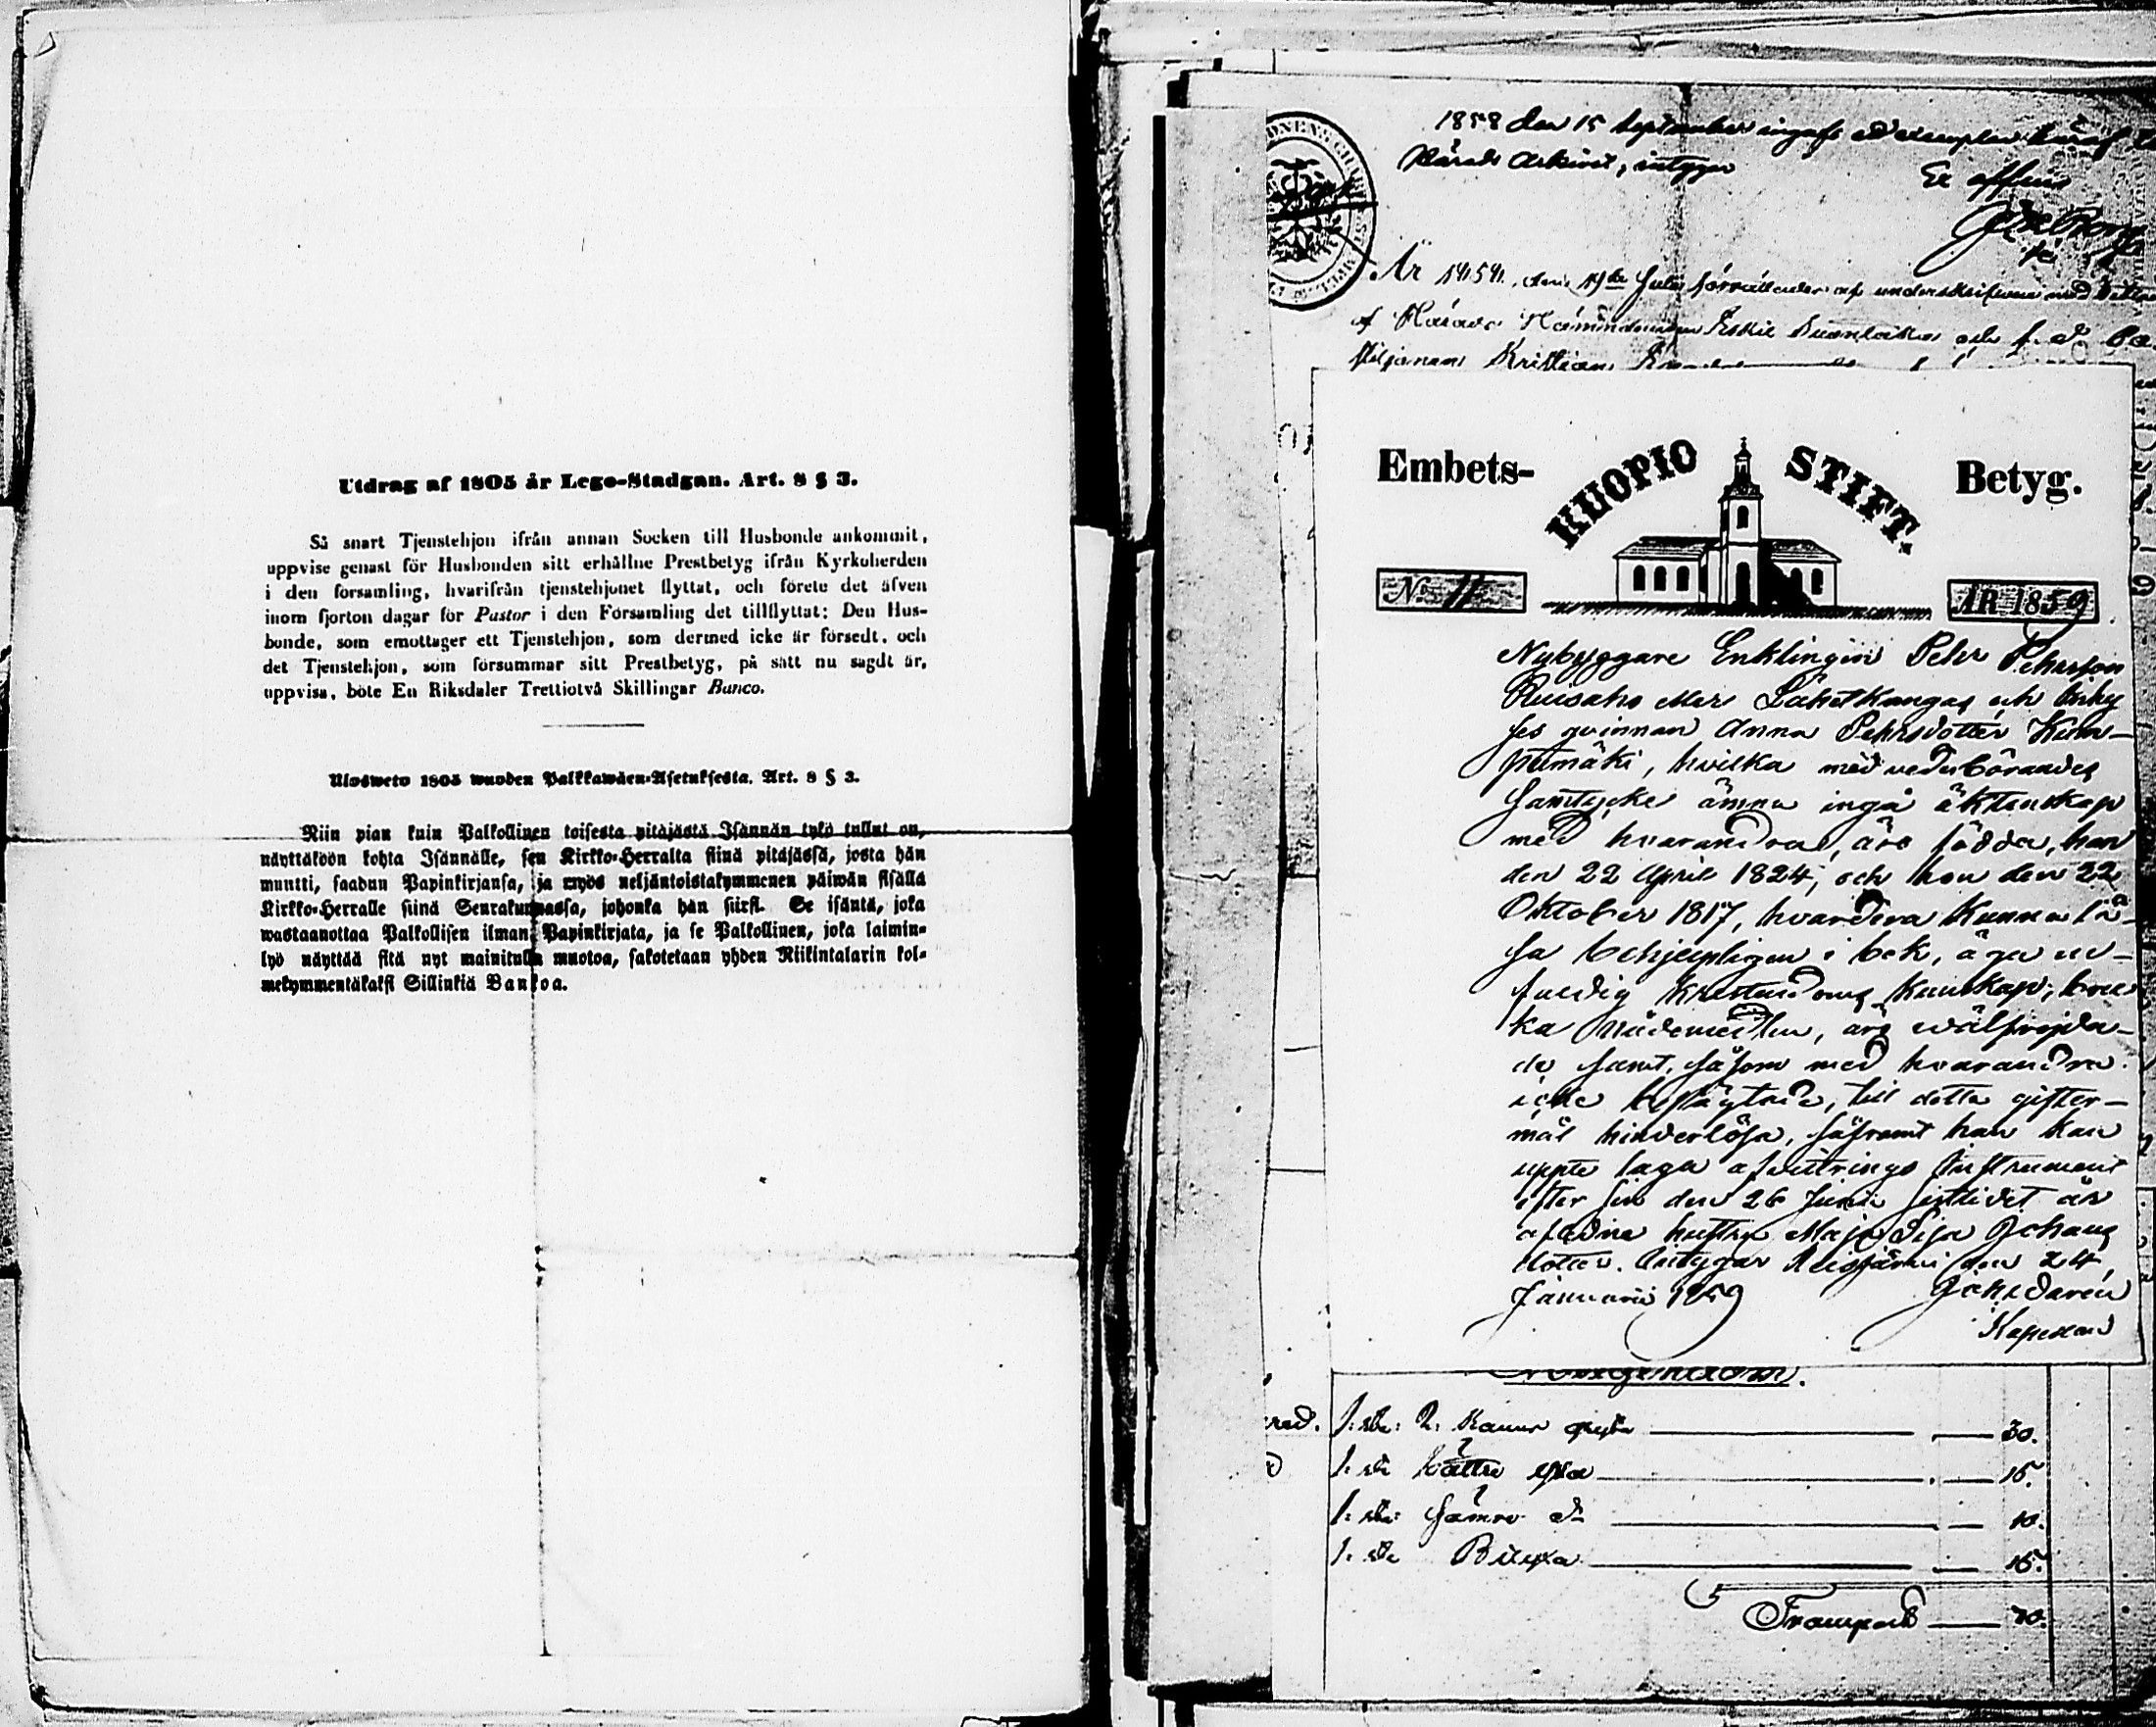 Utdrag af 1805 år Lego-Stadgan. Art. 8 § 3.
Så snart Tjenstehjon ifrån annan Socken till Husbonde ankommit,
uppvise genast för Husbonden sitt erhållne Prestbetyg ifrån Kyrkoherden
i den församling, hvarifrån tjenstehjonet flyttat, och förete det äfven
inom fjorton dagar för Pastor i den Församling det tillflyttat; Den Hus-
bonde, som emottager ett Tjenstehjon, som dermed icke är försedt, och
det Tjenstehjon, som försummar sitt Prestbetyg, på sätt nu sagdt är,
uppvisa, böte En Riksdaler Trettiotvå Skillingar Banco.
Ulosweto 1805 wuoden Palkkawäen-Asetuksesta. Art. 8 § 3.
Niin pian kuin Palkollinen toisesta pitäjästä Isännän tykö tullut on,
näyttäköön kohta Isännälle, sen Kirkko-Herralta siinä pitäjässä, josta hän
muutti, saadun Papinkirjansa, ja myös neljäntoistakymmenen päiwän sisällä
Kirkko-Herralle siinä Seurakunnassa, johonka hän siirsi. Se isäntä, joka
wastaanottaa Palkollisen ilman Papinkirjata, ja se Palkollinen, joka laimin-
lyö näyttää sitä nyt mainitulla muotoa, sakotetaan yhden Riikintalarin kol-
mekymmentäkaksi Sillinkiä Bankoa.
1858 den 15 September ingafs ett exemplar häraf
Härads Arkivet, intygar
Ex officio
År 1854, den 19de Juli förrättades af undertecknad med biträde
af Härads Nämndemannen Eskil och f. d.
Kristian
Embets- KUOPIO STIFT. Betyg.
No 11 ÅR 1859
Nybyggare Enklingen Pehr Pehrsson
Ruisaho eller Lähetkangas och
qvinnan Anna Pehrsdotter Kum-
pumäki, hvilka med vederbörandes
samtycke ämna ingå äktenskap
med hvarandra, äro födda, han
den 22 April 1824, och hon den 22
Oktober 1817, hvardera kunna lä-
sa behjelpligen i bok, äga en-
faldig kristendoms kunskap, bru-
ka nådemedlen, äro wälfrejda-
de samt, såsom med hvarandra
icke beslägtade, till detta gifter-
mål hinderlösa, såframt han kan
uppte laga afwittrings Instrument
efter sin den 26 Junii sistlidet år
aflidne hustru Maja Lisa Johans
dotter. Intygar Reisjärvi den 24
Januarii 1859
Kapellan
1. st. 30.
1. st. 15.
1. st. sämre d:o 10.
1. st. 15.
Transport 70.